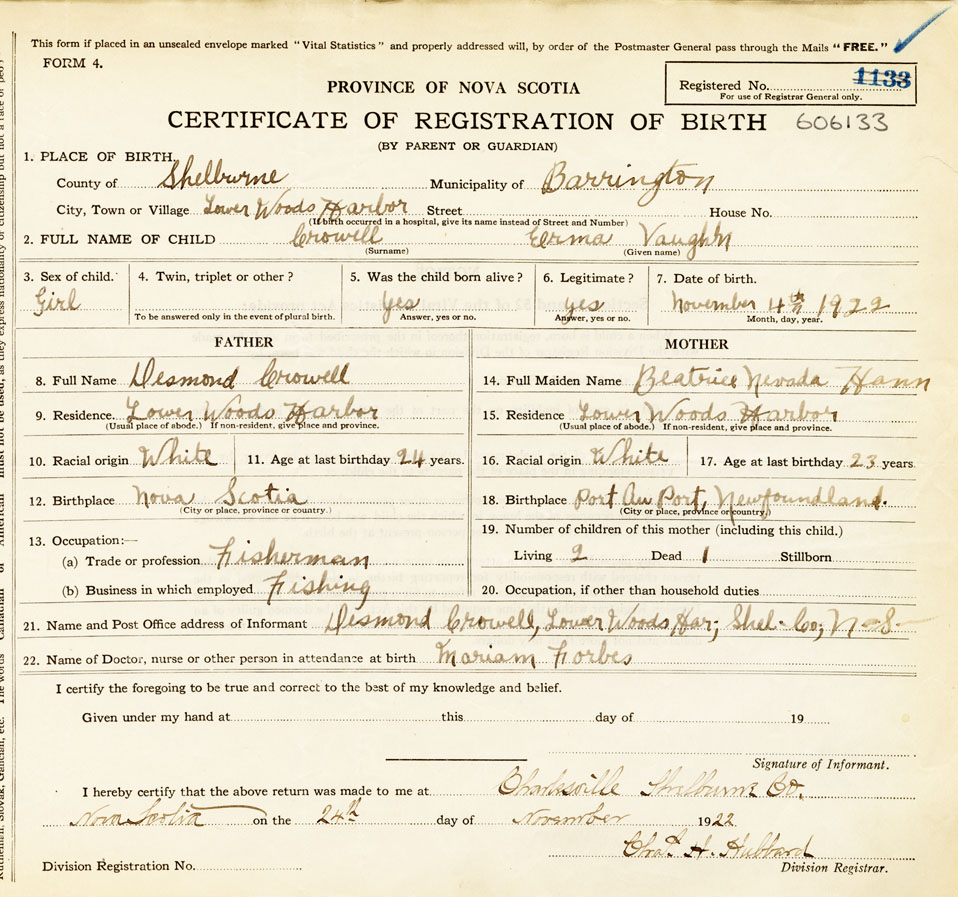 This form if placed in an unsealed envelope marked "Vital Statistics" and properly addressed will, by order of the Postmaster General pass through the Mails "FREE."
FORM 4.
PROVINCE OF NOVA SCOTIA
Registered No. 1133
For use of Registrar General only.
CERTIFICATE OF REGISTRATION OF BIRTH 606133
(BY PARENT OR GUARDIAN)
1. PLACE OF BIRTH,
County of Shelburne Municipality of Barrington
City, Town or Village Lower Woods Harbor Street House No.
(If birth occurred in a hospital, give its name instead of Street and Number)
2. FULL NAME OF CHILD Crowell Erma Vaughn
(Surname) (Given name)
3. Sex of child. 4. Twin, triplet or other? 5. Was the child born alive? 6. Legitimate? 7. Date of birth.
Girl yes yes November 4th 1922
To be answered only in the event of plural birth. Answer, yes or no. Answer, yes or no. Month, day, year.
FATHER MOTHER
8. Full Name Desmond Crowell 14. Full Maiden Name Beatrice Nevada Hann
9. Residence. Lower Woods Harbor 15. Residence Lower Woods Harbor
(Usual place of abode.) If non-resident, give place and province. (Usual place of abode.) If non-resident, give place and province.
10. Racial origin White 11. Age at last birthday 24 years. 16. Racial origin White 17. Age at last birthday 23 years
12. Birthplace Nova Scotia 18. Birthplace Port Au Port, Newfoundland.
(City or place, province or country.) (City or place, province or country,)
13. Occupation:— 19. Number of children of this mother (including this child.)
(a) Trade or profession Fisherman Living 2 Dead 1 Stillborn
(b) Business in which employed Fishing 20. Occupation, if other than household duties
21. Name and Post Office address of Informant Desmond Crowell, Lower Woods Har; Shel- Co; N-S-
22. Name of Doctor, nurse or other person in attendance at birth Mariam Forbes
I certify the foregoing to be true and correct to the best of my knowledge and belief.
Given under my hand at this day of 19
Signature of Informant.
I hereby certify that the above return was made to me at Charlesville Shelburne Co.
Nova Scotia on the 24th day of November 1922
Chas. H. Hubbard
Division Registration No. Division Registrar.